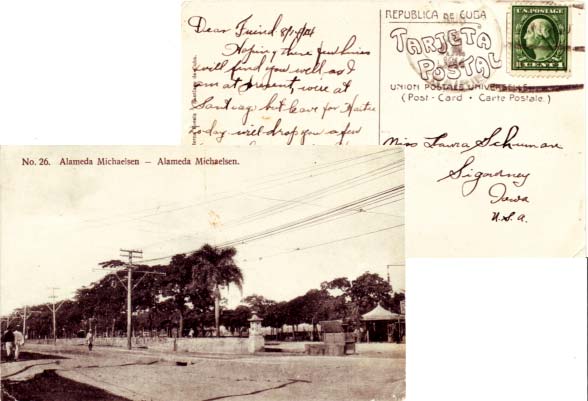 Dear Friend 8/7/14
Hoping these few lines
will find you well as I
am at present, were at
Santiag but leave for Haitie
today will drop you a few
REPUBLICA DE CUBA
TARJETA
POSTAL
UNION POSTALE UNIVERSELLE
(Post - Card - Carte Postale.)
U.S. POSTAGE
CENTS
Miss Laura Schumane
Sigourney
Iowa
U.S.A.
No. 26. Alameda Michaelsen – Alameda Michaelsen.